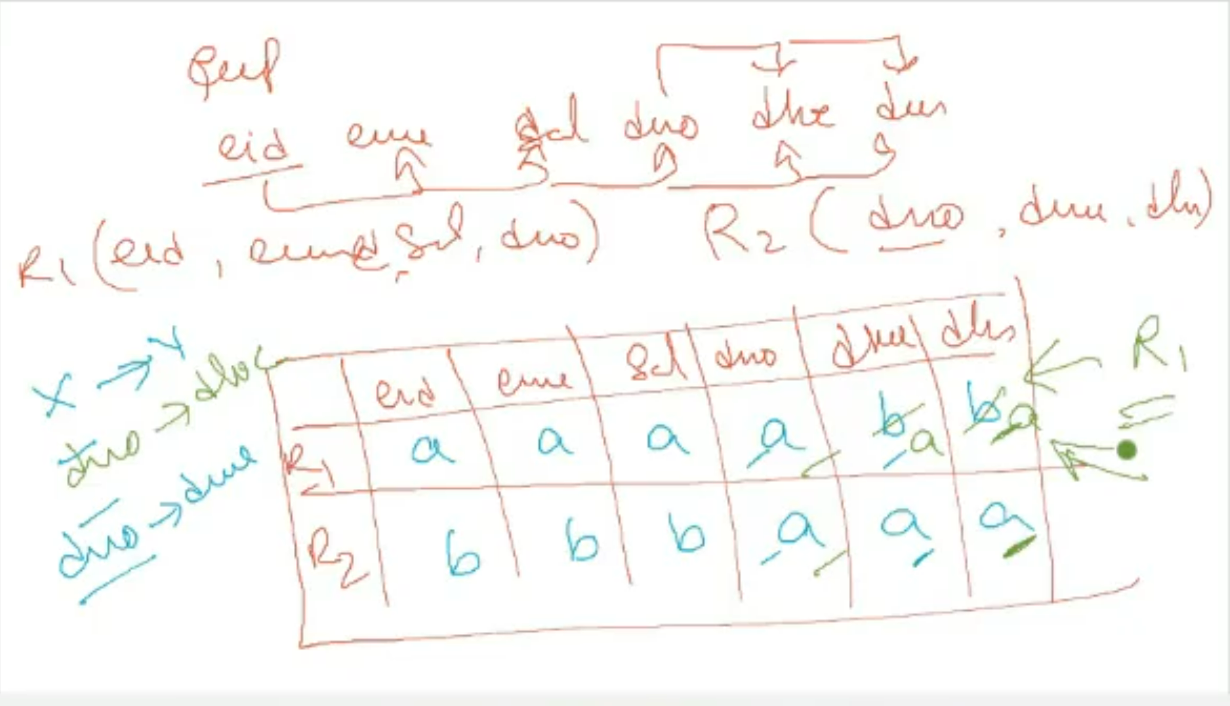 Emp
eid ename sal dno dme dln
R1 (eid, ename, sal, dno) R2 (dno, dme, dln)
X → Y
dno → dloc
dno → dme
eid eme sal dno dme dln
R1 a a a a b a b a
R2 b b b a a a
R1